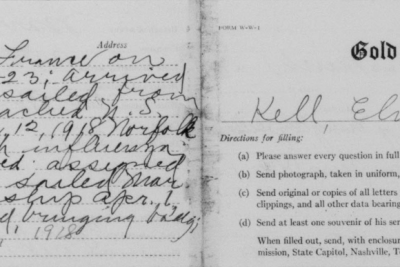 Address
France on
-23; arrived
sailed from
reached U.S.
12, 1918 Norfolk
h influenza
ed assigned
sailed Mar.
ship Apr. 1,
d, bringing body;
, 1918
FORM W-W-1
Gold
Kell, El
Directions for filing:
(a) Please answer every question in full
(b) Send photograph, taken in uniform,
(c) Send original or copies of all letters
clippings, and all other data bearing
(d) Send at least one souvenir of his ser
When filled out, send, with enclosu
mission, State Capitol, Nashville, T